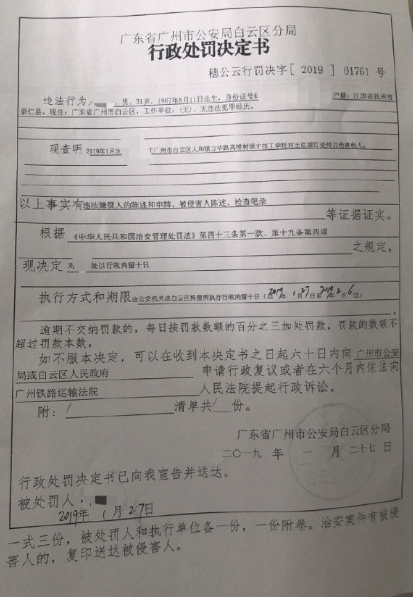 广东省广州市公安局白云区分局
行政处罚决定书
穗公云行罚决字〔2019〕01761 号
违法行为人 男，31岁，1987年8月11日出生，身份证号 户籍：江西省抚州市
崇仁县，现住：广东省广州市白云区，工作单位：(无)，无违法犯罪经历。
现查明 2019年1月 广州市白云区人和镇 学校对出
以上事实有违法嫌疑人的陈述和申辩、被侵害人陈述、检查笔录
等证据证实。
根据 《中华人民共和国治安管理处罚法》第四十三条第一款、第十九条第四项
之规定，
现决定 对 处以行政拘留十日
执行方式和期限 由公安机关送白云区拘留所执行行政拘留十日（自2019年1月27日至2019年2月6日）
逾期不交纳罚款的，每日按罚款数额的百分之三加处罚款，罚款的数额不
超过罚款本数。
如不服本决定，可以在收到本决定书之日起六十日内向 广州市公安
局或白云区人民政府 申请行政复议或者在六个月内依法向
广州铁路运输法院 人民法院提起行政诉讼。
附：/ 清单共/ 份。
广东省广州市公安局白云区分局
二〇一九年 一 月二十七日
行政处罚决定书已向我宣告并送达。
被处罚人：
2019年 1月27日
一式三份，被处罚人和执行单位各一份，一份附卷。治安案件有被侵
害人的，复印送达被侵害人。